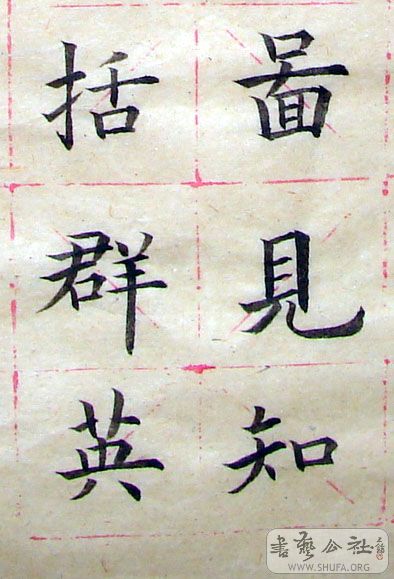 啚見知
括群英
書藝公社
WWW.SHUFA.ORG